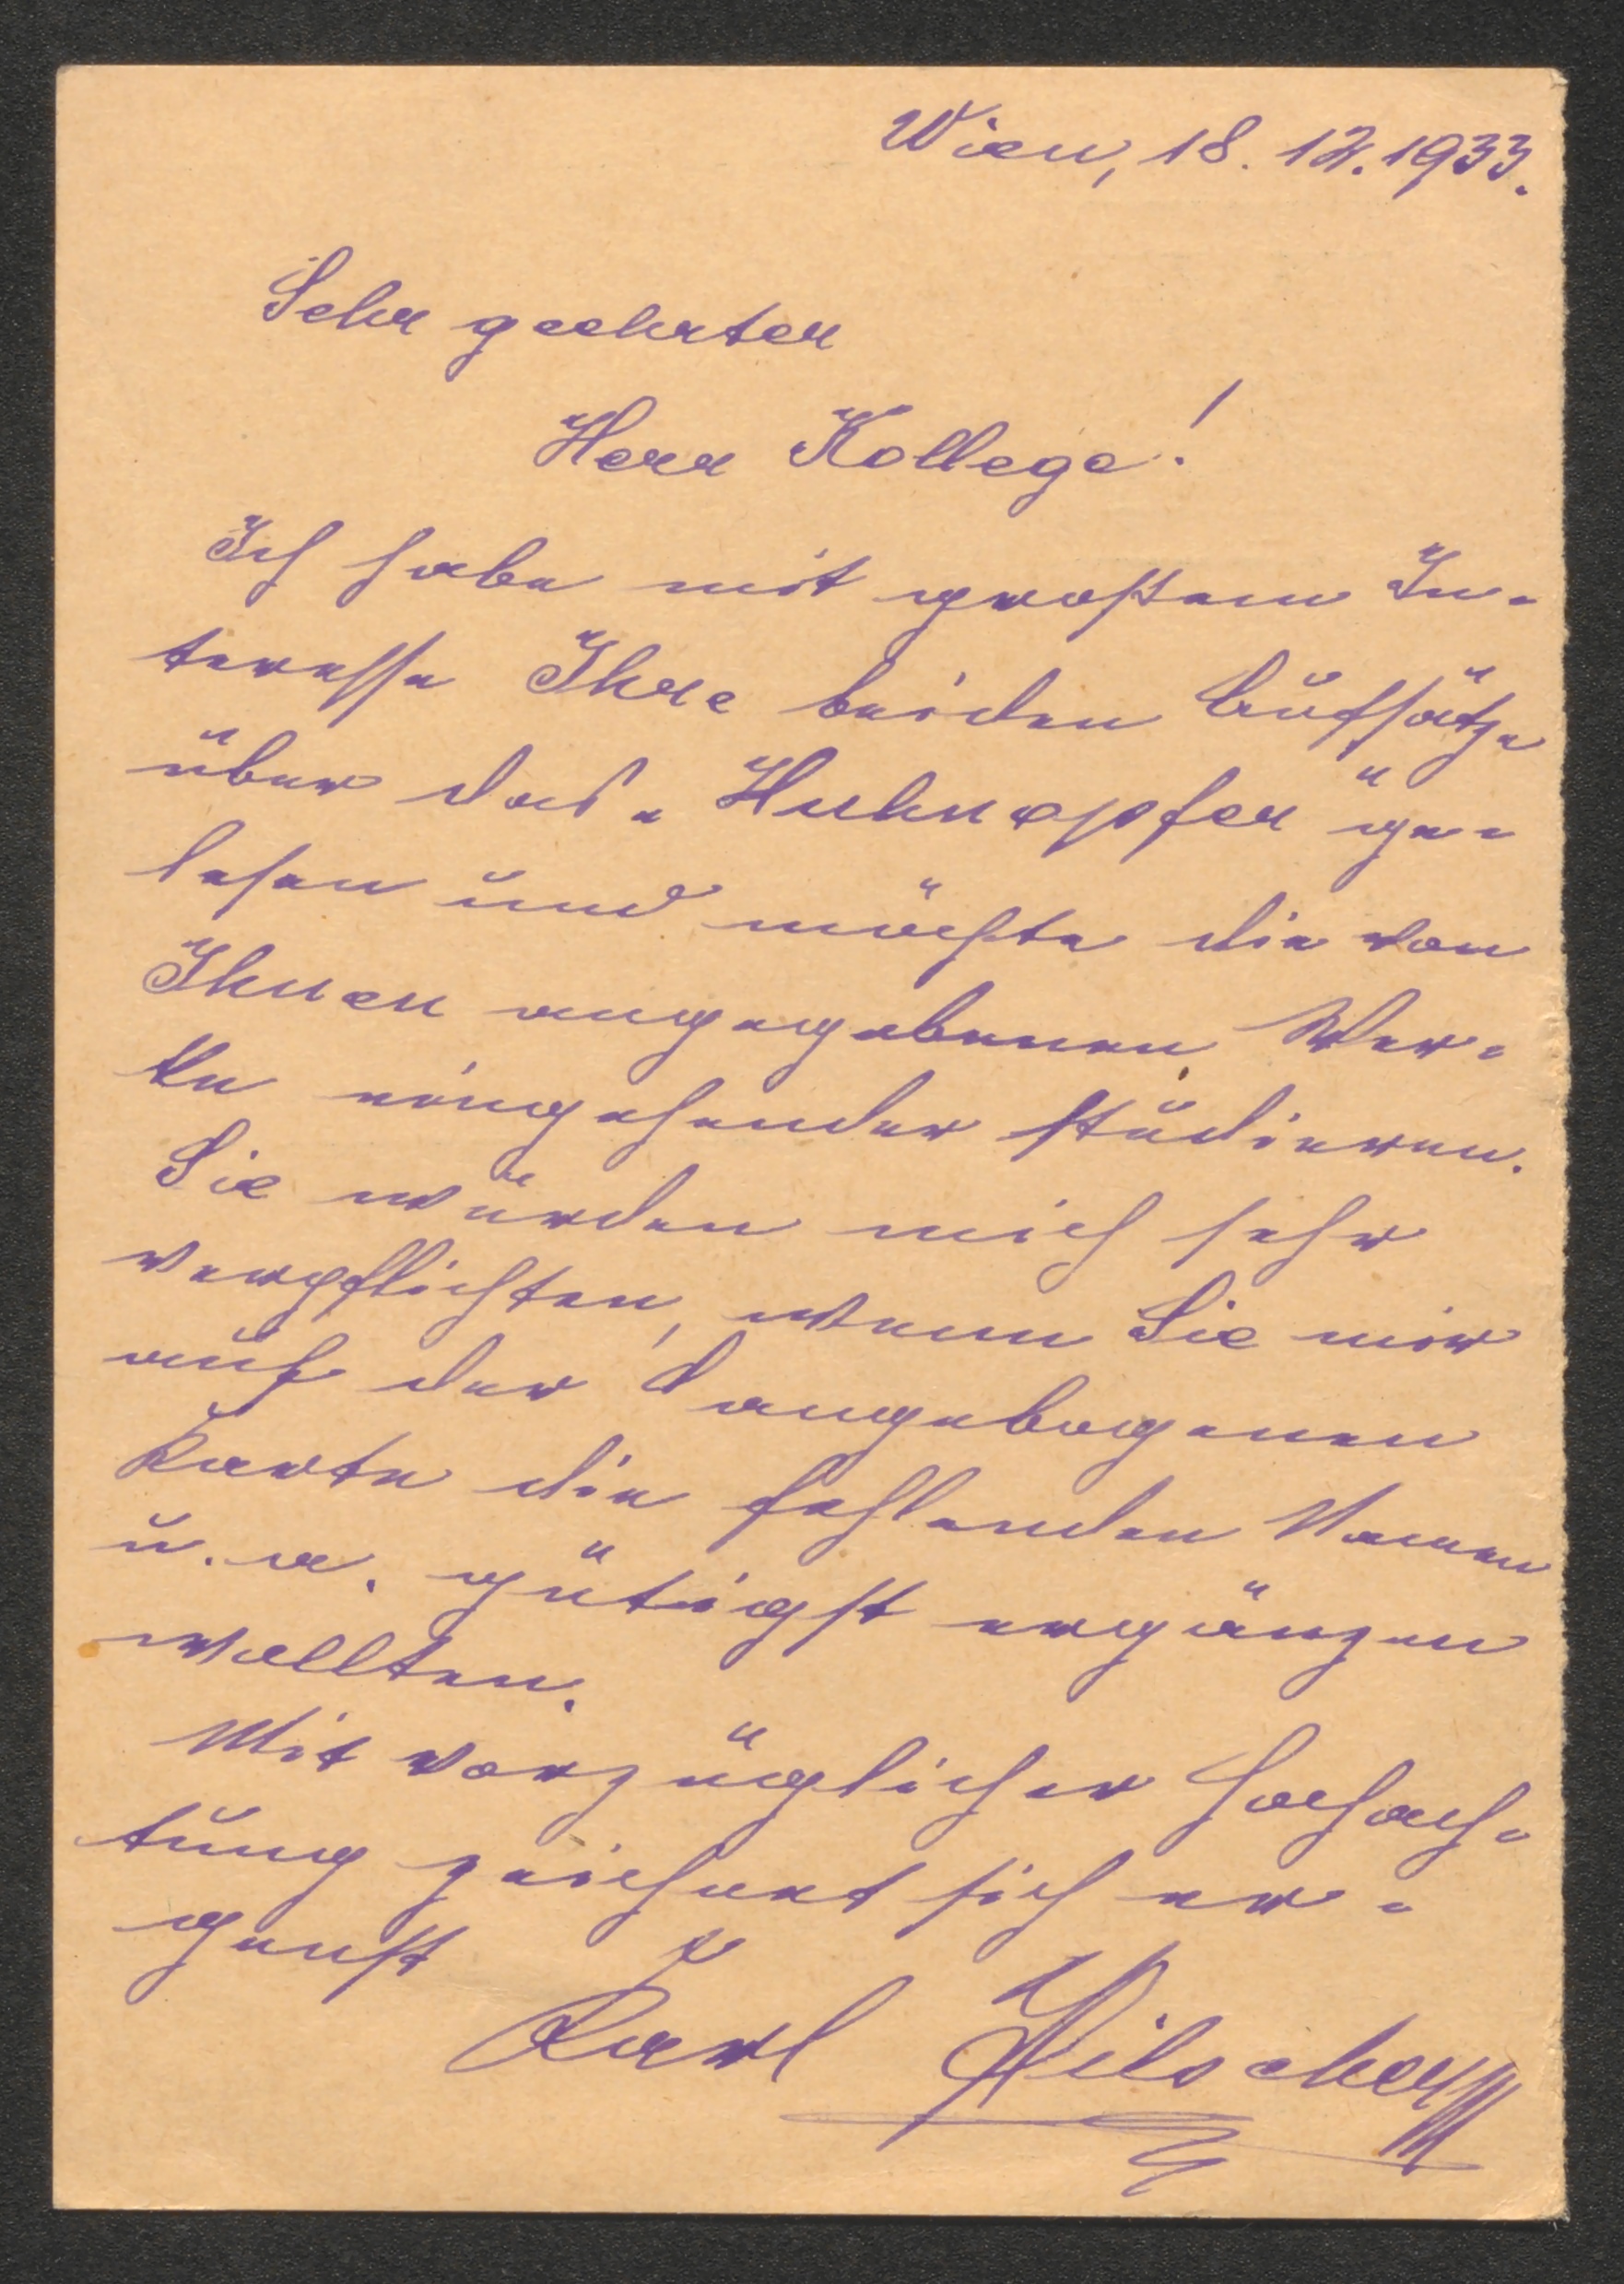 Wien, 18. 12. 1933.
Sehr geehrter
Herr Kollege!
Ich habe mit großem In-
teresse Ihre beiden Aufsätze
über das „Huhnopfer“ ge-
lesen und möchte die von
Ihnen angegebenen Wer-
ke eingehender studieren.
Sie würden mich sehr
verpflichten, wenn Sie mir
auf der angebogenen
Karte die fehlenden Namen
u. a. gütigst ergänzen
wollten.
Mit vorzüglicher Hochach-
tung zeichnet sich er-
genst
Karl